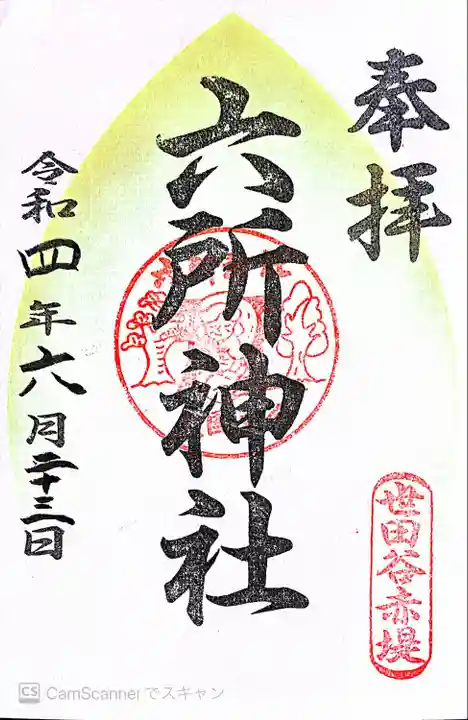 奉拝
六所神社
令和四年六月二十三日
世田谷赤堤
CS CamScannerでスキャン